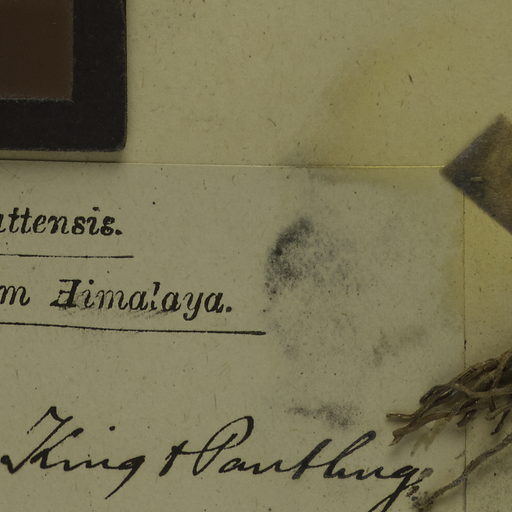 attensis.
m Himalaya.
King & Pantling